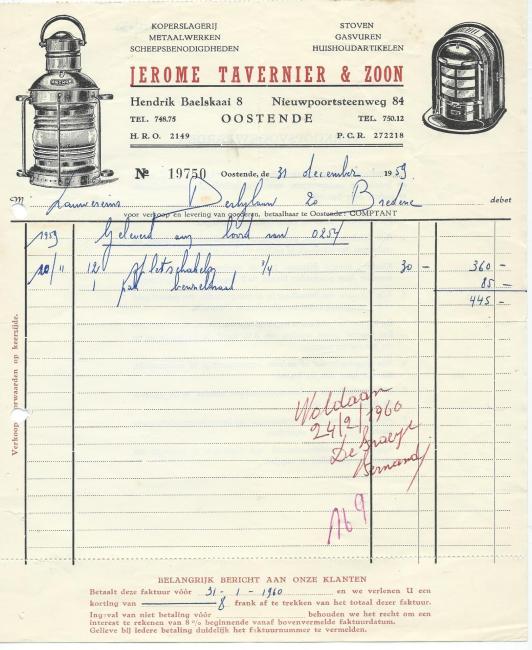 KOPERSLAGERIJ
METAALWERKEN
SCHEEPSBENODIGDHEDEN
STOVEN
GASVUREN
HUISHOUDARTIKELEN
JEROME TAVERNIER & ZOON
Hendrik Baelskaai 8 Nieuwpoortsteenweg 84
TEL. 748.75 OOSTENDE TEL. 750.12
H. R. O. 2149 P. C. R. 272218
№ 19750 Oostende, de 31 december 1959
M Lauwereins Derbylaan 20 Bredene debet
voor verkoop en levering van goederen, betaalbaar te Oostende: COMPTANT
1959 Geleverd aan boord van 0257
20/11 12 splitschakels 3/4 30 - 360 -
1 pak 85 -
445 -
Verkoop voorwaarden op keerzijde.
Voldaan
24/2/1960
De
Fernand
169
BELANGRIJK BERICHT AAN ONZE KLANTEN
Betaalt deze faktuur vóór 31 - 1 - 1960 en we verlenen U een
korting van 8 frank af te trekken van het totaal dezer faktuur.
Ingeval van niet betaling vóór behouden we het recht om een
interest te rekenen van 8 % beginnende vanaf bovenvermelde faktuurdatum.
Gelieve bij iedere betaling duidelijk het faktuurnummer te vermelden.